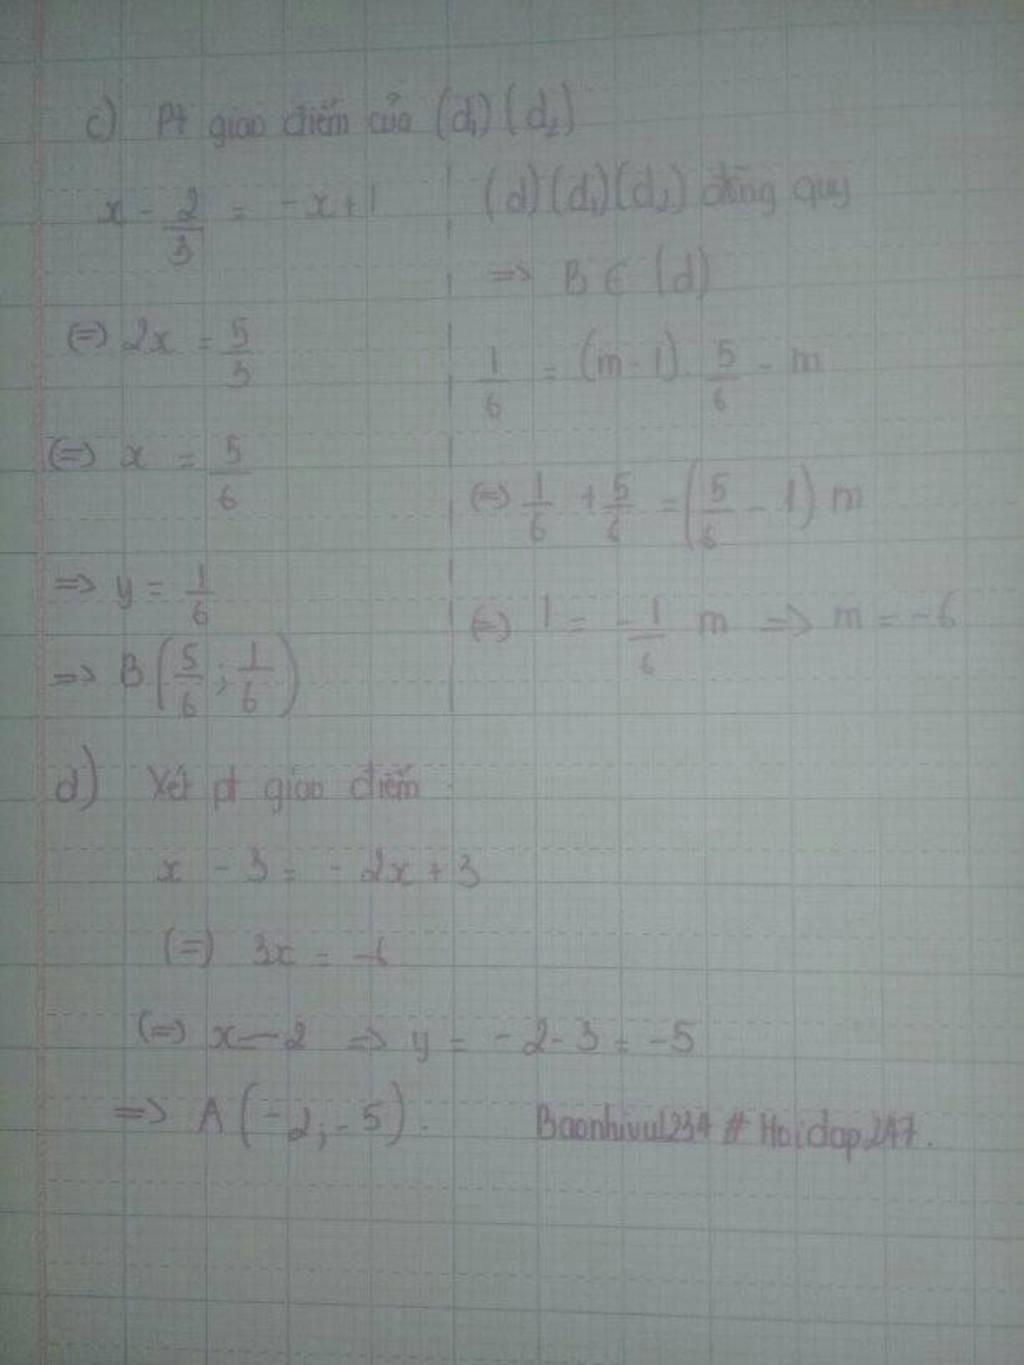 c) Pt giao điểm của (d₁) (d₂)
x - 2/3 = -x+1
(=) 2x = 5/3
(=) x = 5/6
=> y = 1/6
=> B(5/6; 1/6)
(d) (d₁) (d₂) đồng quy
=> B ∈ (d)
1/6 = (m-1). 5/6 - m
(=) 1/6 + 5/6 = (5/6 - 1) m
(=) 1 = -1/6 m => m = -6
d) Xét pt giao điểm
x - 3 = -2x+3
(=) 3x = -6
(=) x = -2 => y = -2-3 = -5
=> A(-2; -5).
Baonhivu1234 # Hoidap247.